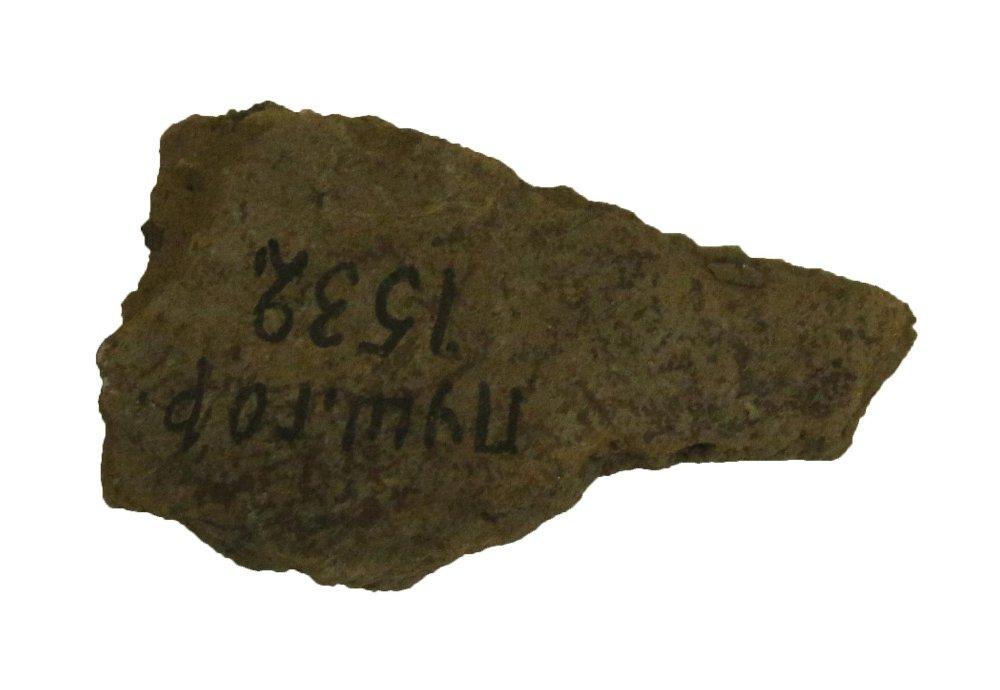 Пуш.гор.
1532